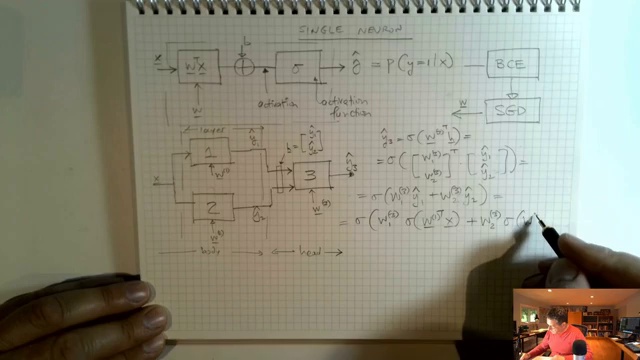 SINGLE NEURON
x wᵀx b σ ŷ = P(y=1|x) BCE
w activation activation function w SGD
layer ŷ₁ h = [ŷ₁ ŷ₂] ŷ₃
x 1 w⁽¹⁾ 3 w⁽³⁾
2 ŷ₂ w⁽²⁾
body head
ŷ₃ = σ(w⁽³⁾ᵀ h) =
= σ([w₁⁽³⁾ w₂⁽³⁾]ᵀ [ŷ₁ ŷ₂]) =
= σ(w₁⁽³⁾ ŷ₁ + w₂⁽³⁾ ŷ₂) =
= σ(w₁⁽³⁾ σ(w⁽¹⁾ᵀ x) + w₂⁽³⁾ σ(w